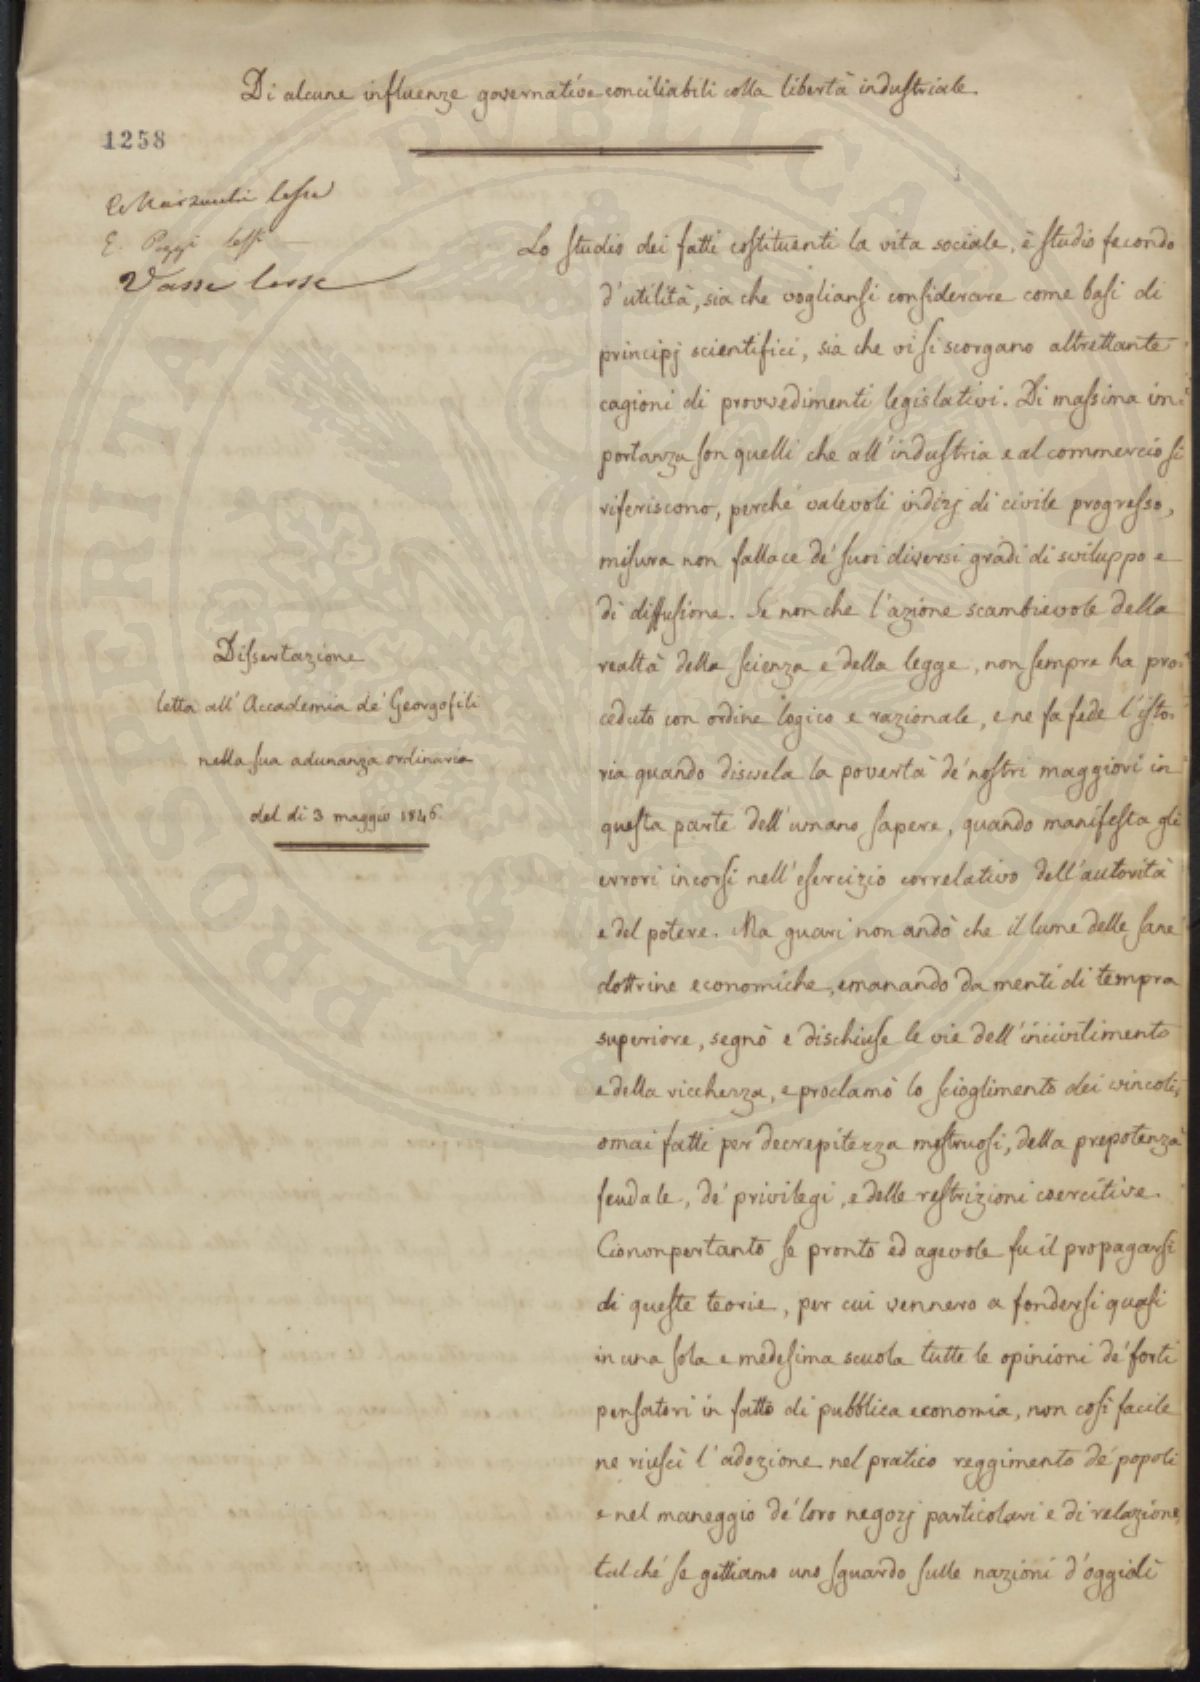 Di alcune influenze governative conciliabili colla libertà industriale.
1258
E. Poggi lesse
Lo studio dei fatti costituenti la vita sociale, è studio fecondo
d'utilità, sia che vogliansi considerare come basi di
principj scientifici, sia che vi si scorgano altrettante
cagioni di provvedimenti legislativi. Di massima im-
portanza son quelli che all'industria e al commercio si
riferiscono, perché valevoli indizj di civile progresso,
misura non fallace de' suoi diversi gradi di sviluppo e
di diffusione. Se non che l'azione scambievole della
realtà della scienza e della legge, non sempre ha pro-
ceduto con ordine logico e razionale, e ne fa fede l'isto-
ria quando disvela la povertà de' nostri maggiori in
questa parte dell'umano sapere, quando manifesta gli
errori incorsi nell'esercizio correlativo dell'autorità
e del potere. Ma guari non andò che il lume delle sane
dottrine economiche, emanando da menti di tempra
superiore, segnò e dischiuse le vie dell'incivilimento
e della ricchezza, e proclamò lo scioglimento dei vincoli,
omai fatti per decrepitezza mostruosi, della prepotenza
feudale, de' privilegi, e delle restrizioni coercitive.
Ciononpertanto se pronto ed agevole fu il propagarsi
di queste teorie, per cui vennero a fondersi quasi
in una sola e medesima scuola tutte le opinioni de' forti
pensatori in fatto di pubblica economia, non così facile
ne riuscì l'adozione nel pratico reggimento de' popoli
e nel maneggio de' loro negozj particolari e di relazione,
talché se gettiamo uno sguardo sulle nazioni d'oggidì
Dissertazione
letta all'Accademia de' Georgofili
nella sua adunanza ordinaria
del dì 3 maggio 1846.
PROSPERITÀ PUBLICA